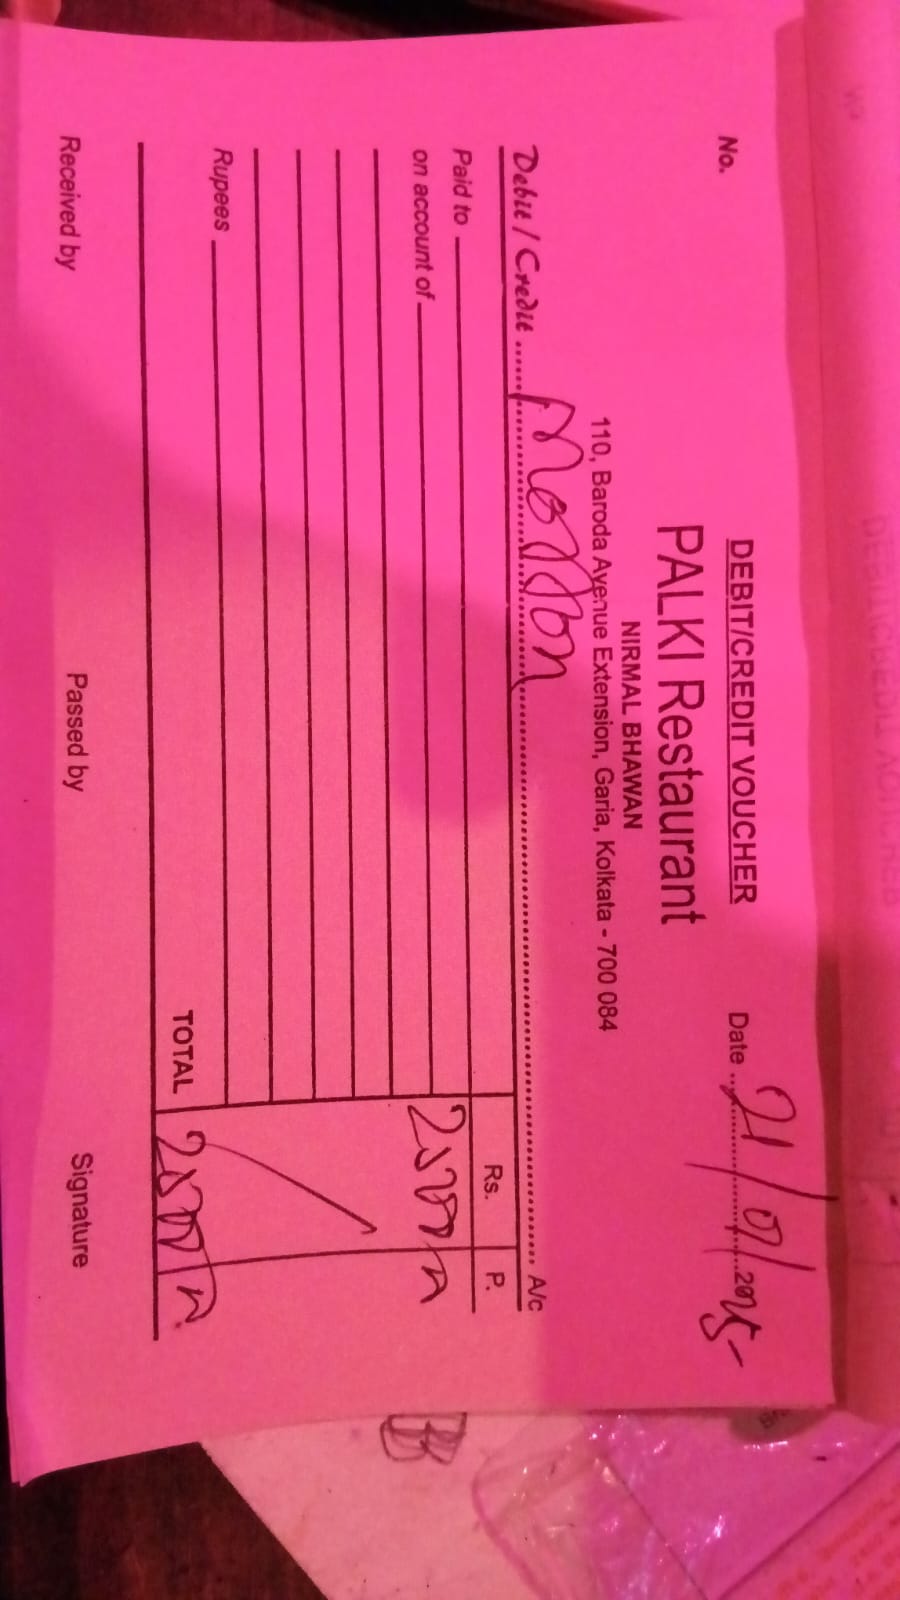 DEBIT/CREDIT VOUCHER
No.
Date 21/01/2025
PALKI Restaurant
NIRMAL BHAWAN
110, Baroda Avenue Extension, Garia, Kolkata - 700 084
Debit / Credit A/c
Rs. P.
Paid to
on account of
Rupees
TOTAL
Received by Passed by Signature